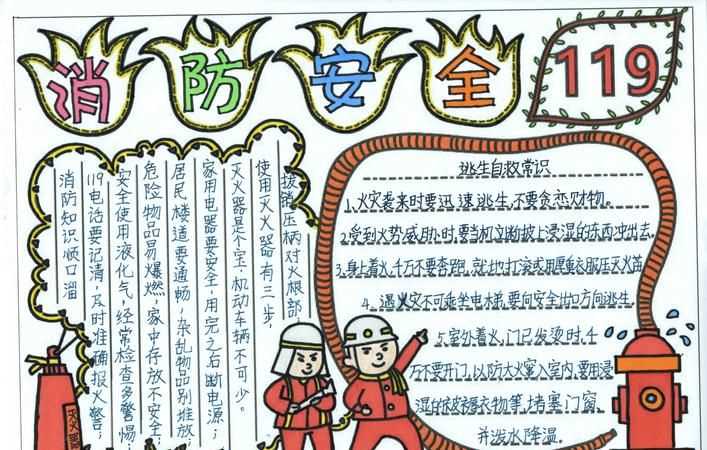 消防安全
119
消防知识顺口溜
119电话要记清，及时准确报火警；
安全使用液化气，经常检查多警惕；
危险物品易爆燃，家中存放不安全；
居民楼道要通畅，杂乱物品别堆放；
家用电器要安全，用完之后断电源；
灭火器是个宝，机动车辆不可少。
使用灭火器有三步，
拔销压柄对火根部
逃生自救常识
1、火灾袭来时要迅速逃生，不要贪恋财物。
2、受到火势威胁时，要当机立断披上浸湿的东西冲出去。
3、身上着火，千万不要奔跑，就地打滚或用厚重衣服压灭火苗
4、遇火灾不可乘坐电梯，要向安全出口方向逃生。
5、室外着火，门已发烫时，千
万不要开门，以防大火窜入室内，要用浸
湿的被褥衣物等，堵塞门窗、
并泼水降温。
灭火